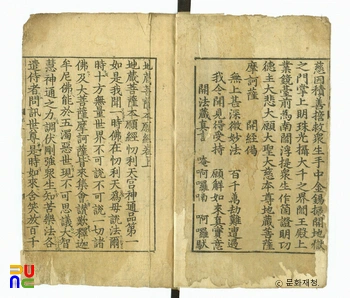 慈因積善誓救衆生手中金錫振開地獄
之門掌上明珠光攝大千之界閻王殿上
業鏡臺前爲南閻浮提衆生作箇證明功
德主大悲大願大聖大慈本尊地藏菩薩
摩訶薩
開經偈
無上甚深微妙法
百千萬劫難遭遇
我今聞見得受持
願解如來眞實意
開法藏眞言
唵阿囉喃阿囉馱
地藏菩薩本願經卷上
地藏菩薩本願經忉利天宮神通品第一
如是我聞一時佛在忉利天爲母說法爾
時十方無量世界不可說不可說一切諸
佛及大菩薩摩訶薩皆來集會讚歎釋迦
牟尼佛能於五濁惡世現不可思議大智
慧神通之力調伏剛強衆生知苦樂法各
遣侍者問訊世尊是時如來含笑放百千
문화재청